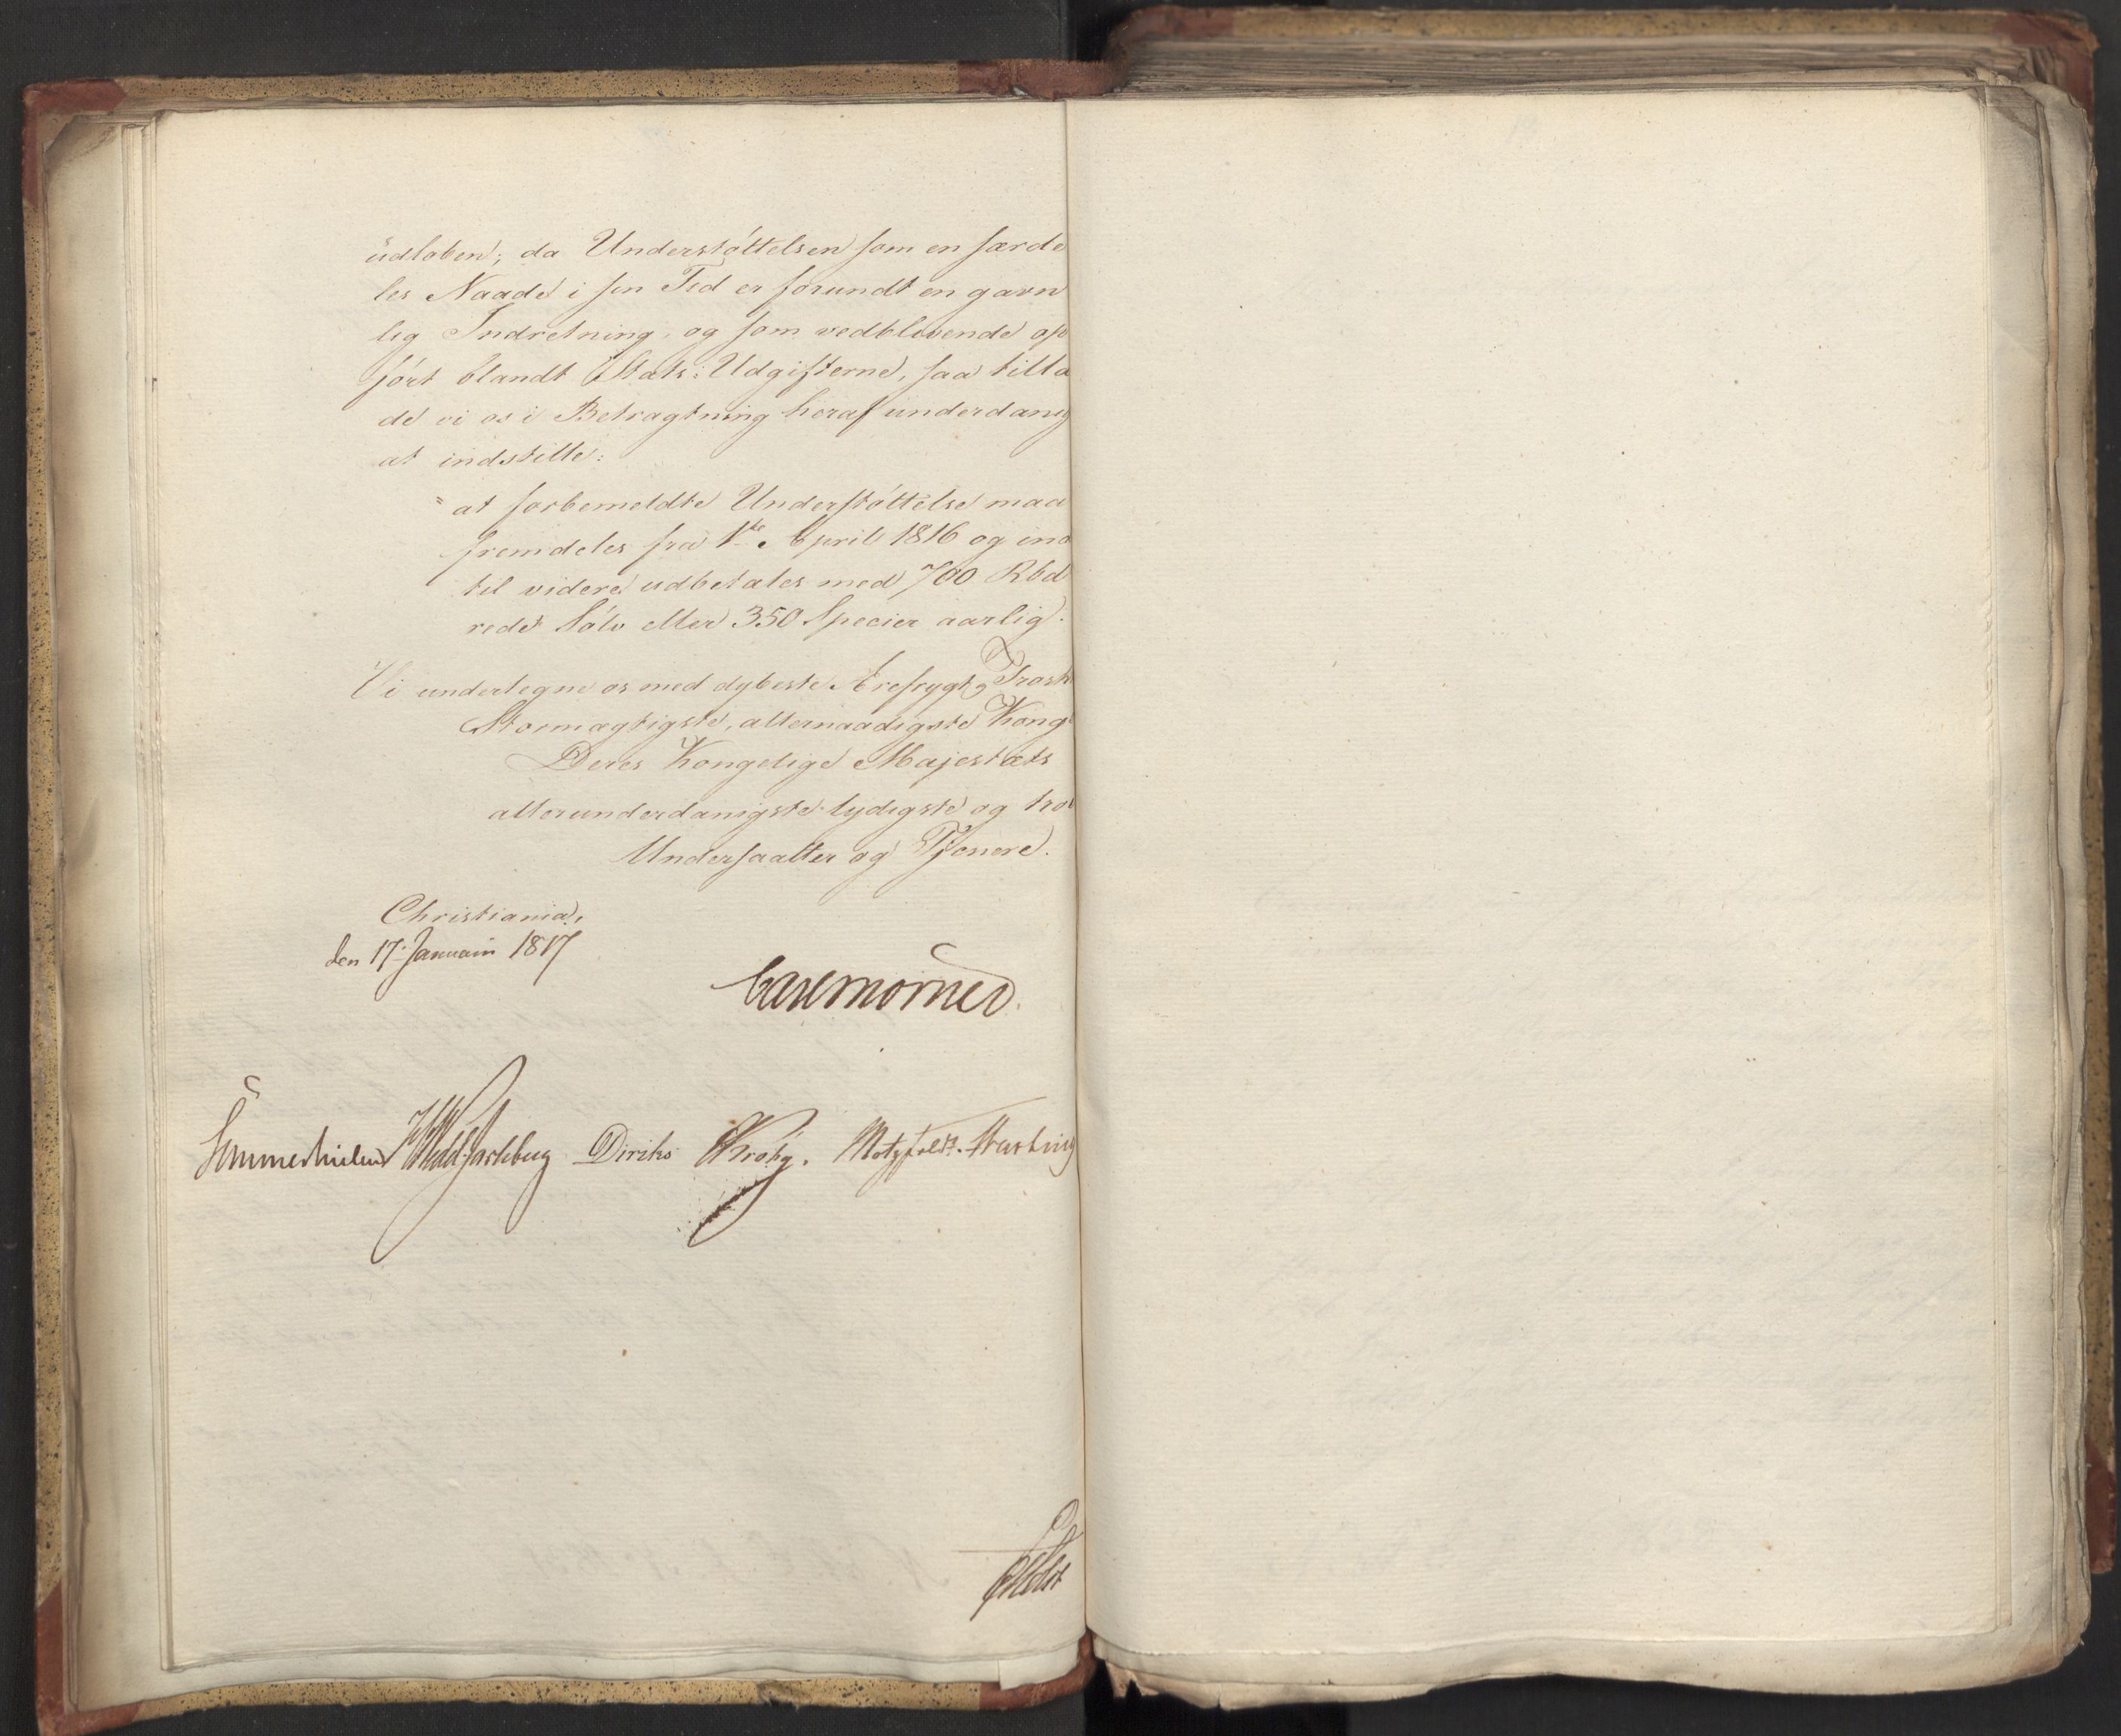 udløben; da Understøttelsen som en særde
les Naade i sin Tid er forundt en gavn
lig Indretning, og som vedblivende op
ført blandt Stats-Udgifterne, saa tilla
de vi os i Betragtning heraf underdanig
at indstille:
"at forbemeldte Understøttelse maa
fremdeles fra 1ste April 1816 og ind
til videre udbetales med 700 Rbd
rede Sølv eller 350 Specier aarlig.
Vi undertegne os med dybeste Ærefrygt og Troesk
Stormægtigste, allernaadigste Konge
Deres Kongelige Majestæts
allerunderdanigste lydigste og tro
Undersaatter og Tjenere.
Christiania,
den 17. Januarii 1817
Carl Mörner
Sommerhielm Wedel Jarlsberg Diriks Krohg. Motzfeldt. Hartvig
Holst